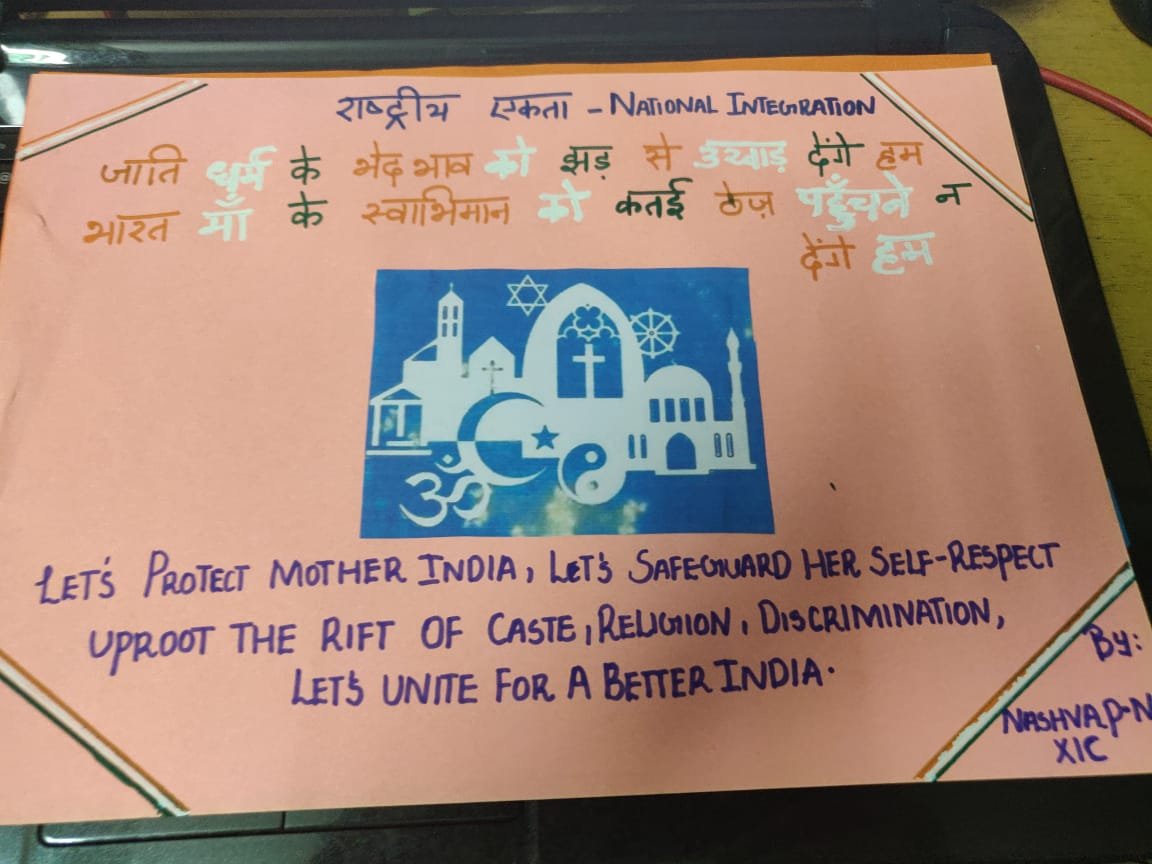 राष्ट्रीय एकता - NATIONAL INTEGRATION
जाति धर्म के भेद भाव को झड़ से उखाड़ देंगे हम
भारत माँ के स्वाभिमान को कतई ठेज़ पहुँचने न
देंगे हम
ॐ
LET'S PROTECT MOTHER INDIA, LET'S SAFEGUARD HER SELF-RESPECT
UPROOT THE RIFT OF CASTE, RELIGION, DISCRIMINATION,
LET'S UNITE FOR A BETTER INDIA.
BY:
NASHVA.P-N
XIC